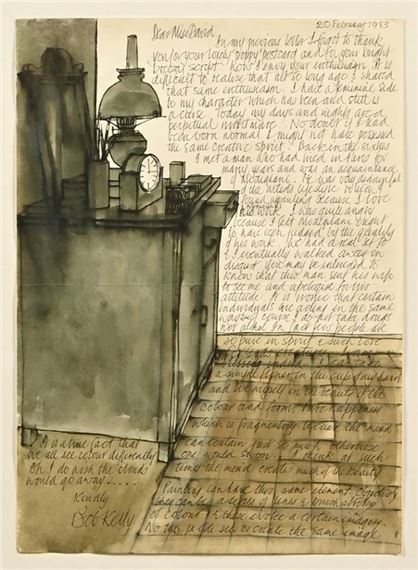 20 February 1983
Dear Miss David
In my previous letter I forgot to thank
you for your lovely 'poppy' postcard and for your bright
breezy script. How I envy your enthusiasm. It is
difficult to realise that not so long ago I shared
that same enthusiasm. I have a feminine side
to my character which has been and still is
a curse. Today my days and nights are a
perpetual nightmare. No doubt if I had
been born normal I might not have possessed
the same creative spirit. Back in the sixties
I met a man who had lived in Paris for
many years and was an acquaintance
of Modigliani. He was very
the artists lifestyle which I
found because I love
his work. I was quite angry
because I felt Modigliani ought
to have been judged by the quality
of his work. We had a real set to
& I eventually walked away in
disgust. You may be interested to
know that this man sent his wife
to see me and apologise for his
attitude. It is ironic that certain
individuals are acting in the same
way. Of course I do not take drugs
nor alcohol. In fact few people are
so pure in spirit & such love
take
a simple flower in the cup of my hand
and lose myself in the beauty of the
colour and form. Pure happiness
which is fragmentary because the mind
can contain just so much otherwise
one would I think at such
times the mind creates much of the beauty.
Painting can have this same element.
a series of lines & brushstrokes
of colour & these evoke a certain imagery.
No two people see or create the same image
It is a fact that
we all see colour differently.
Oh I do wish the clouds
would go away.....
Kindly
Bob Kelly